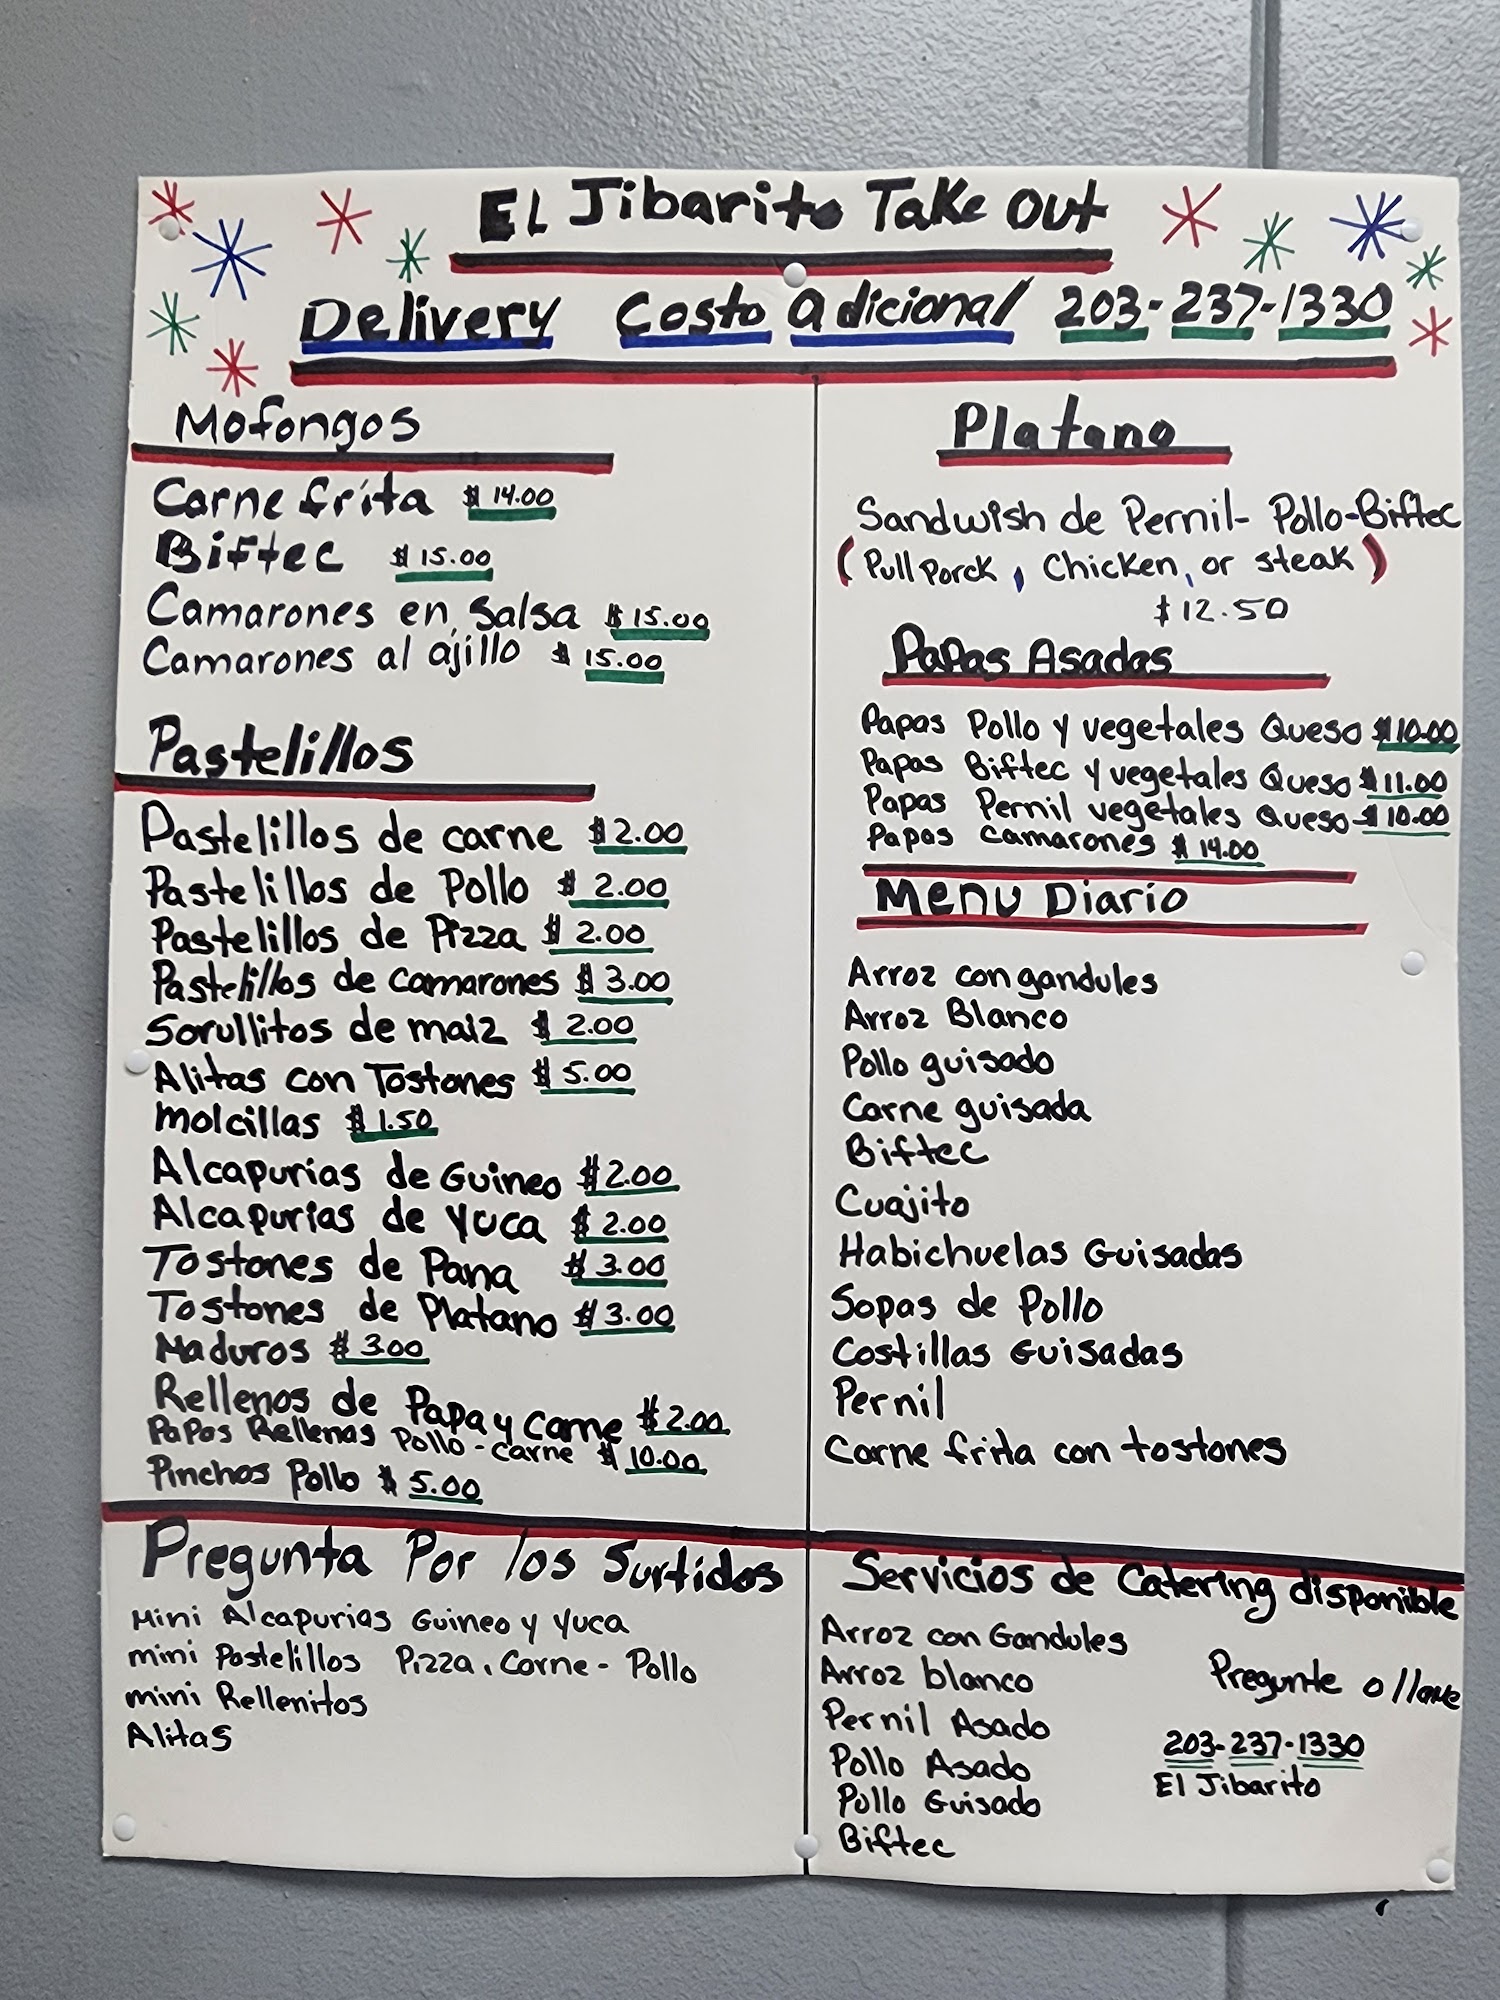 El Jibarito Take Out
Delivery Costo adicional 203-237-1330
Mofongos
Carne frita $14.00
Biftec $15.00
Camarones en Salsa $15.00
Camarones al ajillo $15.00
Pastelillos
Pastelillos de carne $2.00
Pastelillos de Pollo $2.00
Pastelillos de Pizza $2.00
Pastelillos de Camarones $3.00
Sorullitos de maiz $2.00
Alitas con Tostones $5.00
Molcillas $1.50
Alcapurias de Guineo $2.00
Alcapurias de Yuca $2.00
Tostones de Pana $3.00
Tostones de Platano $3.00
Maduros $3.00
Rellenos de Papa y Carne $2.00
Papas Rellenas Pollo-carne $10.00
Pinchos Pollo $5.00
Platano
Sandwish de Pernil- Pollo-Biftec
(Pull Porck, Chicken, or steak)
$12.50
Papas Asadas
Papas Pollo y vegetales Queso $10.00
Papas Biftec y vegetales Queso $11.00
Papas Pernil vegetales Queso $10.00
Papas camarones $14.00
Menu Diario
Arroz con gandules
Arroz Blanco
Pollo guisado
Carne guisada
Biftec
Cuajito
Habichuelas Guisadas
Sopas de Pollo
Costillas Guisadas
Pernil
Carne frita con tostones
Pregunta Por los Surtidos
Mini Alcapurias Guineo y Yuca
mini Pastelillos Pizza, Carne - Pollo
mini Rellenitos
Alitas
Servicios de Catering disponible
Arroz con Gandules
Arroz blanco
Pernil Asado
Pollo Asado
Pollo Guisado
Biftec
Pregunte o llame
203-237-1330
El Jibarito